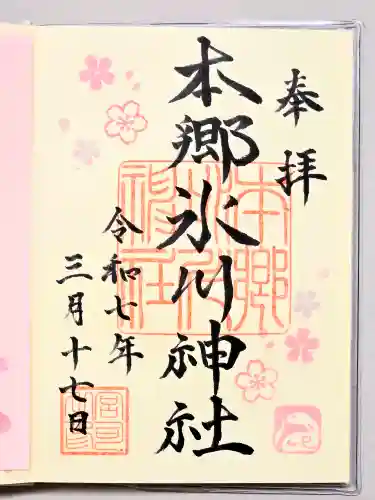 奉拝
本郷氷川神社
令和七年
三月十七日